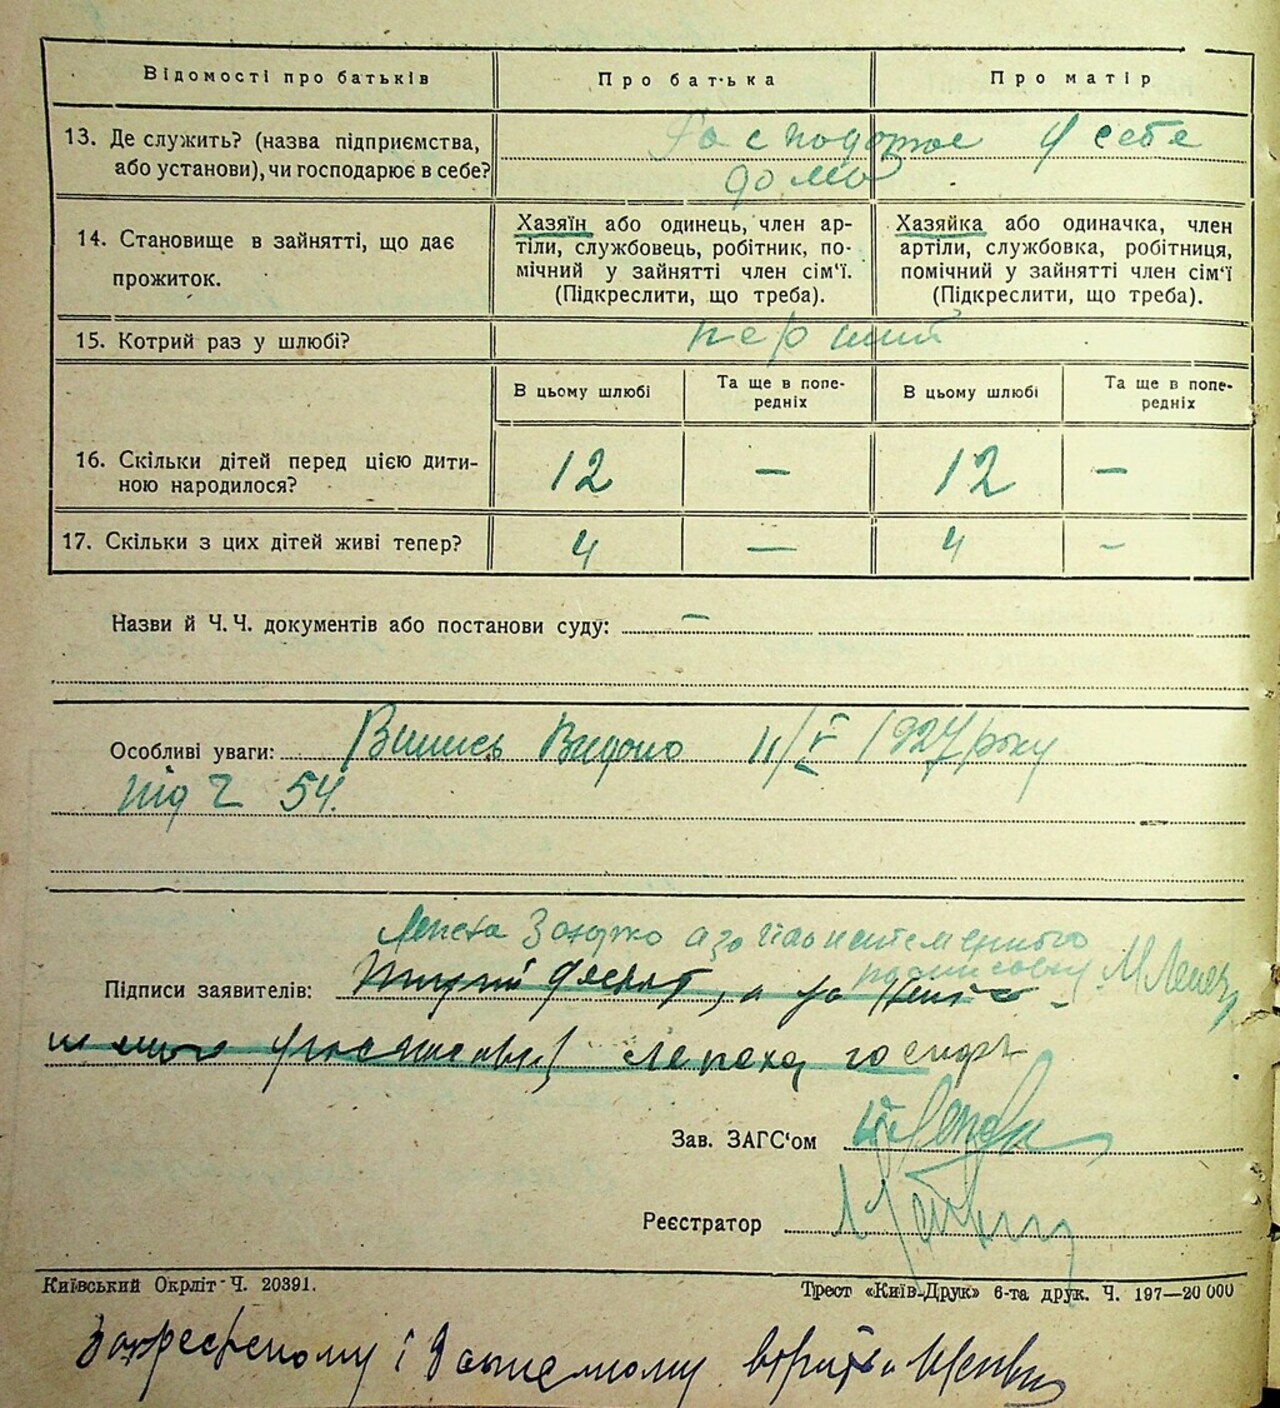 Відомості про батьків
Про батька
Про матір
13. Де служить? (назва підприємства,
або установи), чи господарює в себе?
у себе
дома
14. Становище в зайнятті, що дає
прожиток.
Хазяїн або одинець, член ар-
тіли, службовець, робітник, по-
мічний у зайнятті член сім‘ї.
(Підкреслити, що треба).
Хазяйка або одиначка, член
артіли, службовка, робітниця,
помічний у зайнятті член сім‘ї
(Підкреслити, що треба).
15. Котрий раз у шлюбі?
перший
В цьому шлюбі
Та ще в попе-
редніх
В цьому шлюбі
Та ще в попе-
редніх
16. Скільки дітей перед цією дити-
ною народилося?
12 — 12 —
17. Скільки з цих дітей живі тепер?
4 — 4 –
Назви й Ч. Ч. документів або постанови суду: —
Особливі уваги: Випись Видано 11/V 1927 року
під Ч 54.
Підписи заявителів:
Зав. ЗАГС‘ом
Реєстратор
Київський Окрліт Ч. 20391.
Трест «Київ-Друк» 6-та друк. Ч. 197—20 000
Закресленому і